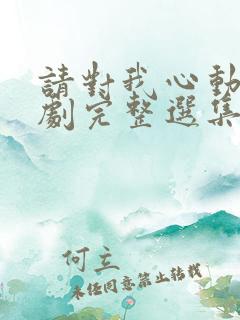 請對我心動
劇完整選集
何立
未经同意禁止转载